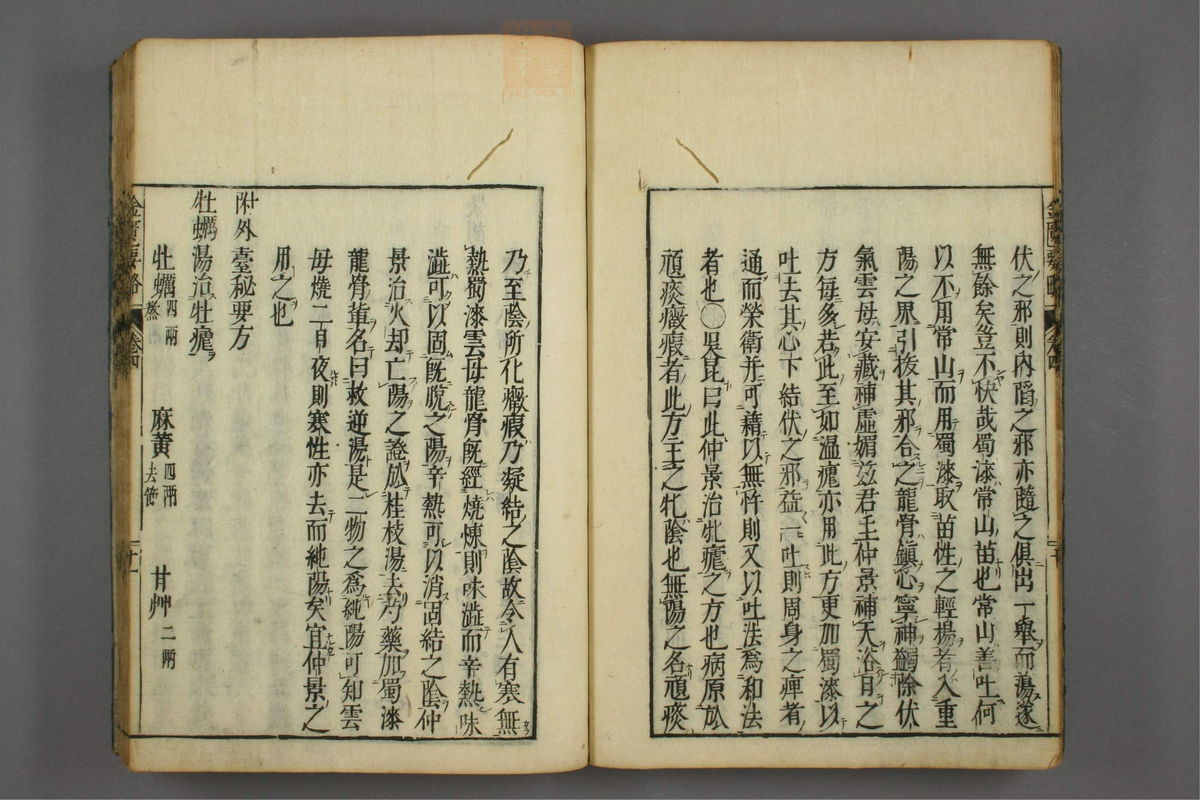 伏之邪則内陷之邪亦隨之俱出一舉而蕩遂
無餘矣豈不快哉蜀漆常山苗也常山善吐何
以不用常山而用蜀漆取苗性之輕揚者入重
陽之界引拔其邪合之龍骨鎮心寧神蠲除伏
氣雲母安藏補虛媚茲君主仲景補天浴日之
方每多若此至如温瘧亦用此方更加蜀漆以
吐去其心下結伏之邪益一吐則周身之痺者
通而榮衛并可藉以無忤則又以吐法為和法
者也〇吳昆曰此仲景治牝瘧之方也病原於
頑痰癥瘕者此方主之牝陰也無陽之名頑痰
乃至陰所化癥瘕乃凝結之陰故令人有寒無
熱蜀漆雲母龍骨既經燒煉則味澁而辛熱味
澁可以固既脫之陽辛熱可以消固結之陰仲
景治火却亡陽之證於桂枝湯去芍藥加蜀漆
龍骨蛎名曰救逆湯是二物之為純陽可知雲
母燒二日夜則寒性亦去而純陽矣宜仲景之
用之也
附外臺秘要方
牡蠣湯治牡瘧
牡蠣四兩熬 麻黄四兩去節 甘艸二兩
金匱要略 卷四 廿一